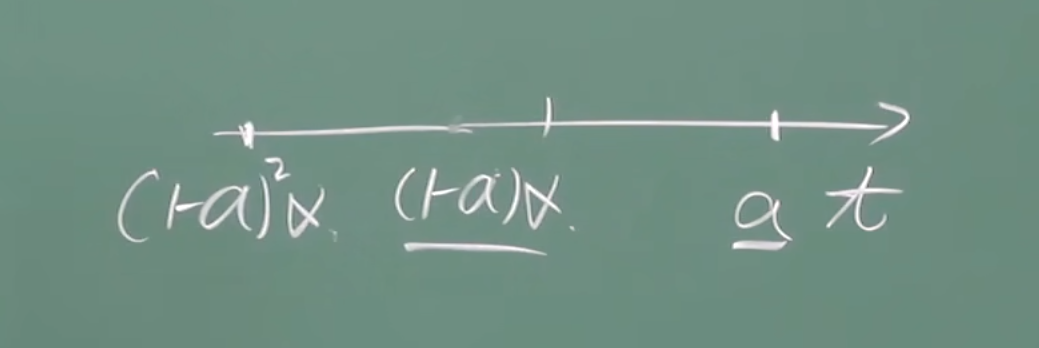 (1-a)²α. (1-a)α. a t